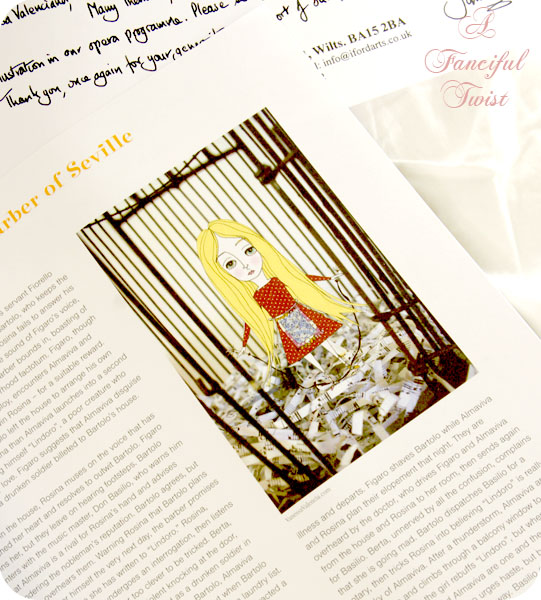 Valenciano, Many
ort of our
ustration in our opera programme. Please
Thank you, once again for your
Wilts. BA15 2BA
info@ifordarts.co.uk
A
Fanciful
Twist
arber of Seville
s servant Fiorello
Bartolo, who keeps the
Rosina fails to answer his
the sound of Figaro's voice,
barber bounds in, boasting of
factotum. Figaro, though
encounters Almaviva and
win Rosina – for a suitable reward.
left the house to arrange his own
than Almaviva launches into a second
himself "Lindoro", a poor creature who
love. Figaro suggests that Almaviva disguise
drunken soldier billeted to Bartolo's house.
the house, Rosina muses on the voice that has
her heart and resolves to outwit Bartolo. Figaro
her, but they leave on hearing footsteps. Bartolo
with the music master, Don Basilio, who warns him
Almaviva is a rival for Rosina's hand and advises
the nobleman's reputation. Bartolo agrees, but
overhears them. Warning Rosina that Bartolo plans
himself the very next day, the barber promises
she has written to "Lindoro". Rosina,
undergoes an interrogation, then listens
too clever to be tricked. Berta,
violent knocking at the door,
as a drunken soldier in
when Bartolo
laundry list.
illness and departs. Figaro shaves Bartolo while Almaviva
and Rosina plan their elopement that night. They are
overheard by the doctor, who drives Figaro and Almaviva
from the house and Rosina to her room, then sends again
for Basilio. Berta, unnerved by all the confusion, complains
that she is going mad. Bartolo dispatches Basilio for a
then tricks Rosina into believing "Lindoro" is
of Almaviva. After a thunderstorm, Almaviva
and climbs through a balcony window to
the girl rebuffs "Lindoro", but when
and Almaviva are one and the
urges haste, but